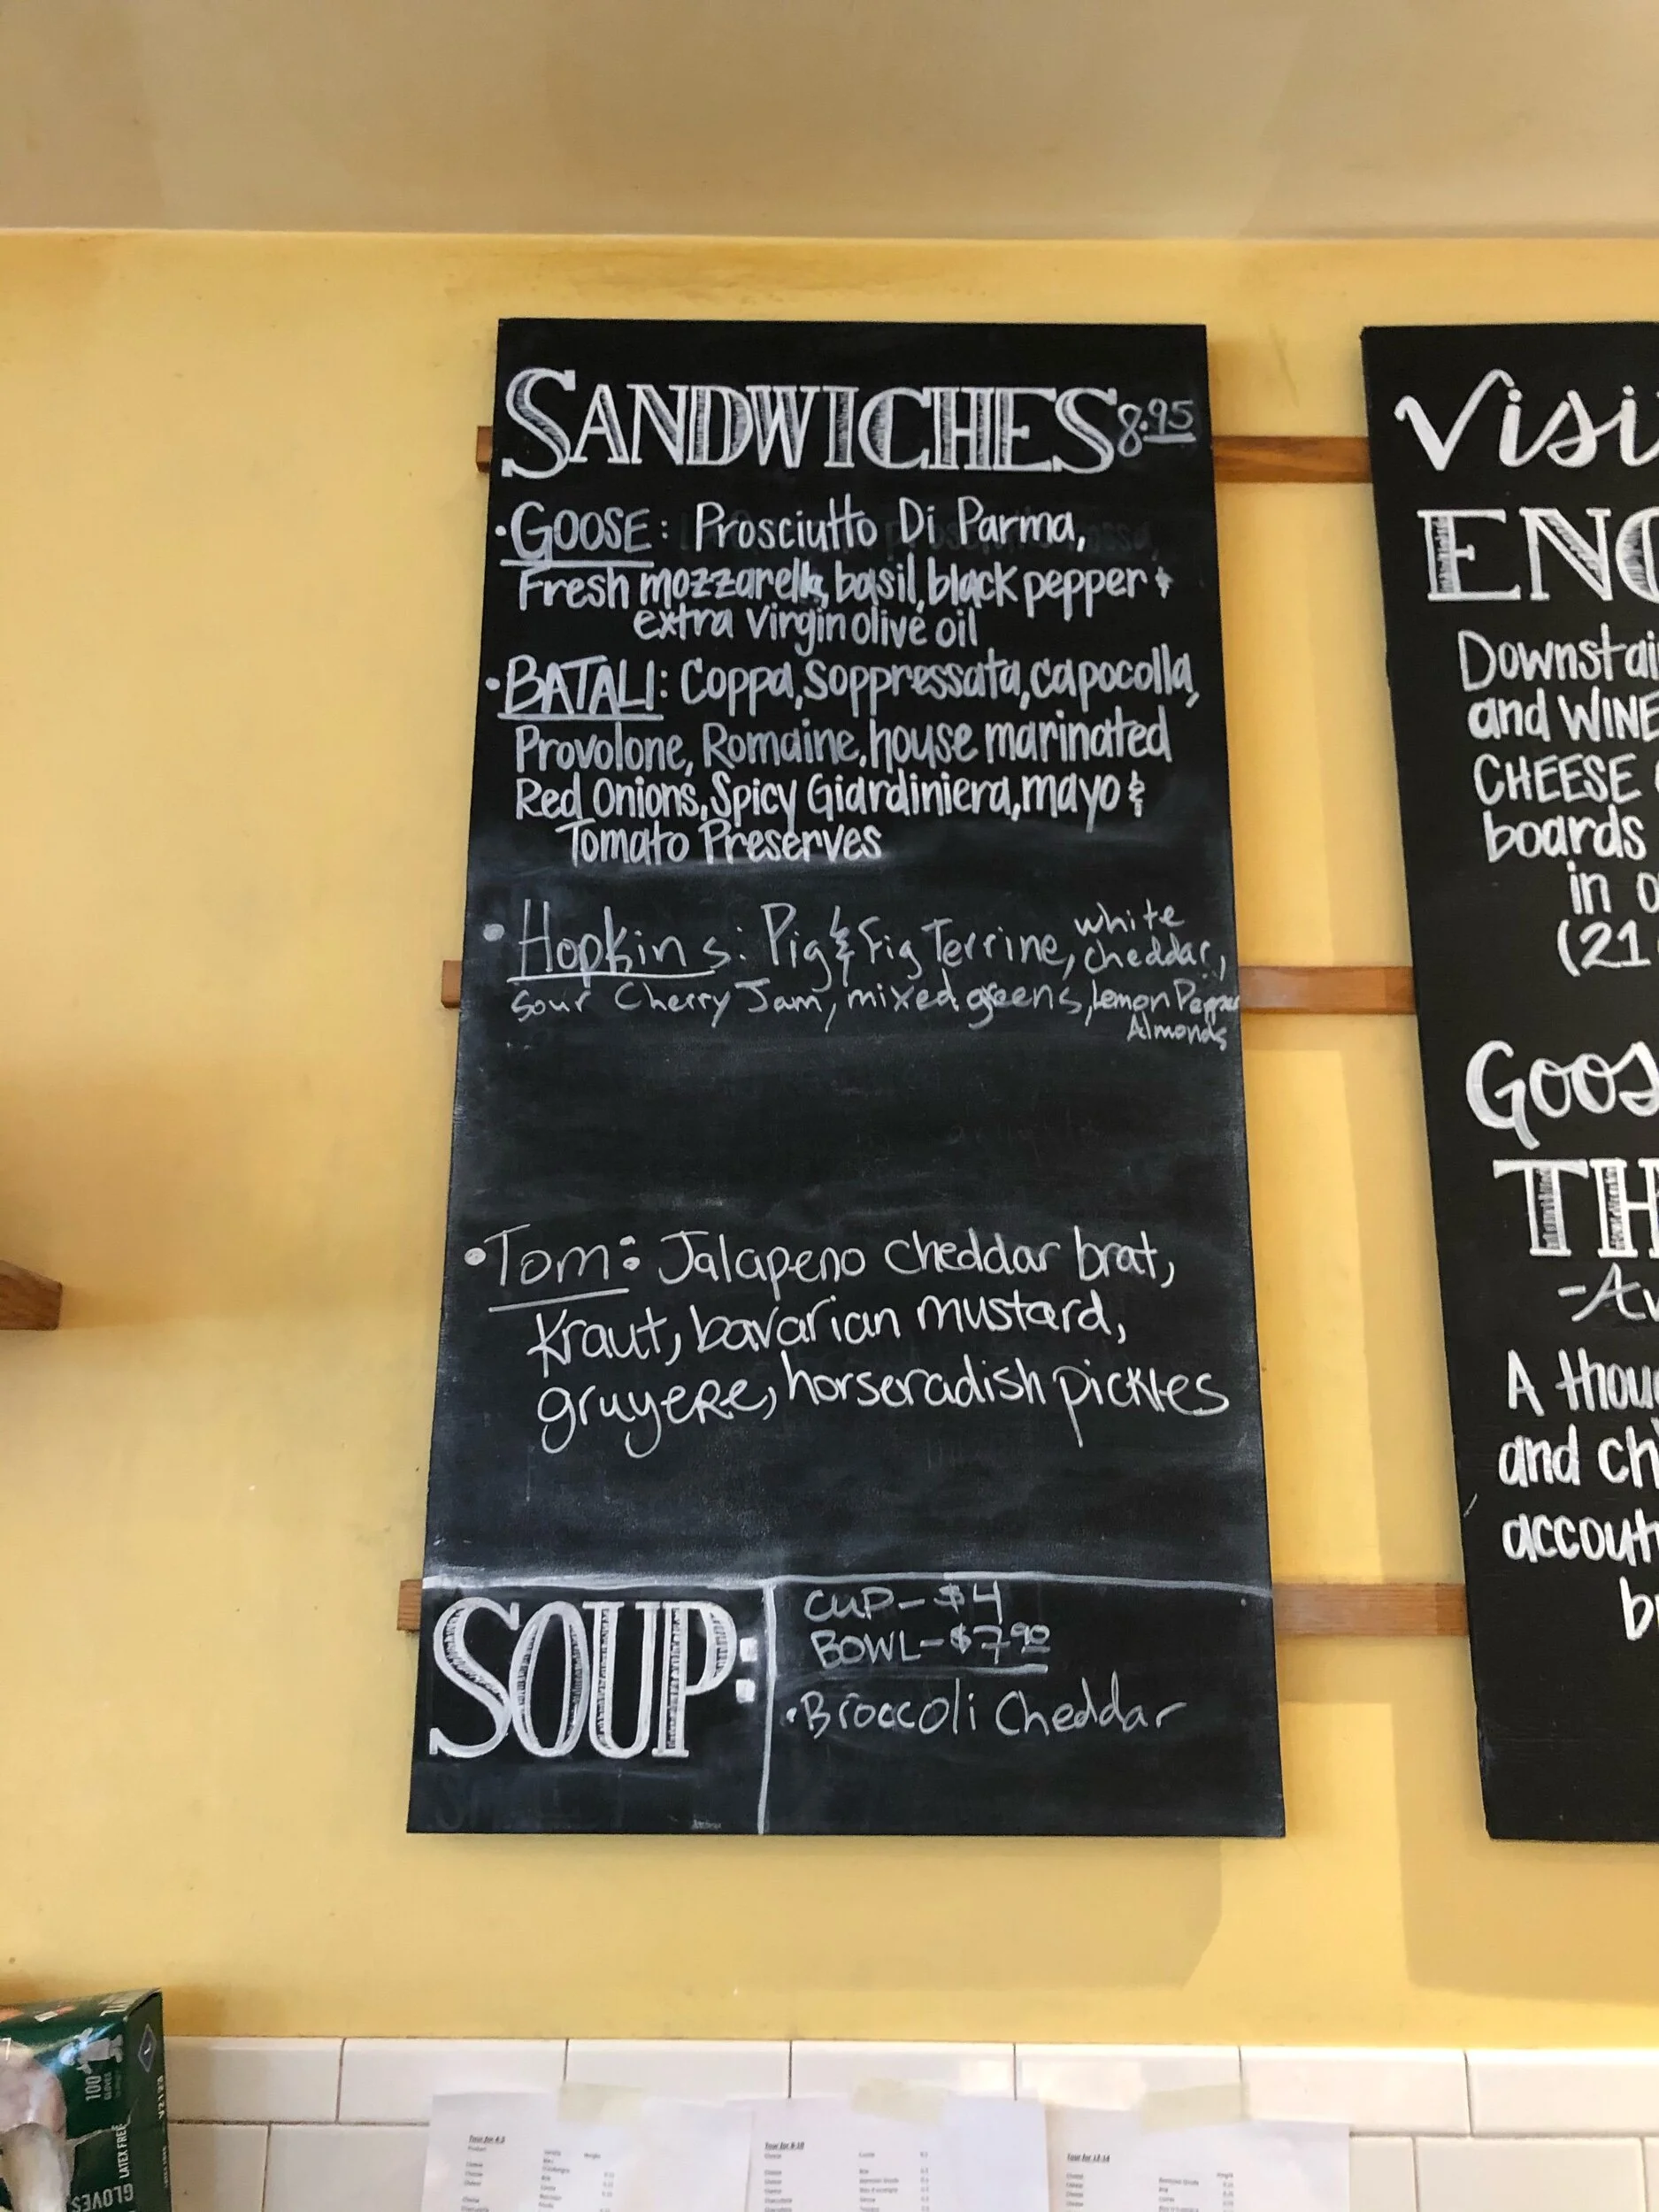 SANDWICHES 8.95
• GOOSE: Prosciutto Di Parma,
Fresh mozzarella, basil, black pepper &
extra Virgin olive oil
• BATALI: Coppa, Soppressata, capocolla,
Provolone, Romaine, house marinated
Red Onions, Spicy Giardiniera, mayo &
Tomato Preserves
• Hopkins: Pig & Fig Terrine, white cheddar,
Sour Cherry Jam, mixed greens, Lemon Pepper
Almonds
• Tom: Jalapeno cheddar brat,
Kraut, bavarian mustard,
gruyere, horseradish pickles
SOUP:
CUP - $4
BOWL - $7.90
• Broccoli Cheddar
Visi
ENO
Downstai
and WINE
CHEESE
boards
in o
(21
Goos
TH
-Av
A thou
and ch
accout
br
100
GLOVES
LATEX FREE
GLOVES
Tour for 4-5
Tour for 8-10
Tour for 12-14